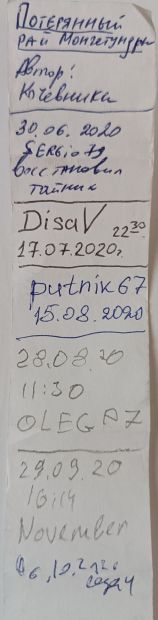 Потерянный
рай Монгетундры
Автор:
Кочевники
30.06.2020
SERGio79
восстановил
тайник
DisaV 22³⁰
17.07.2020г.
putnik67
15.08.2020
28.08.20
11:30
OLEG AZ
29.09.20
16:14
November
06.10.2020